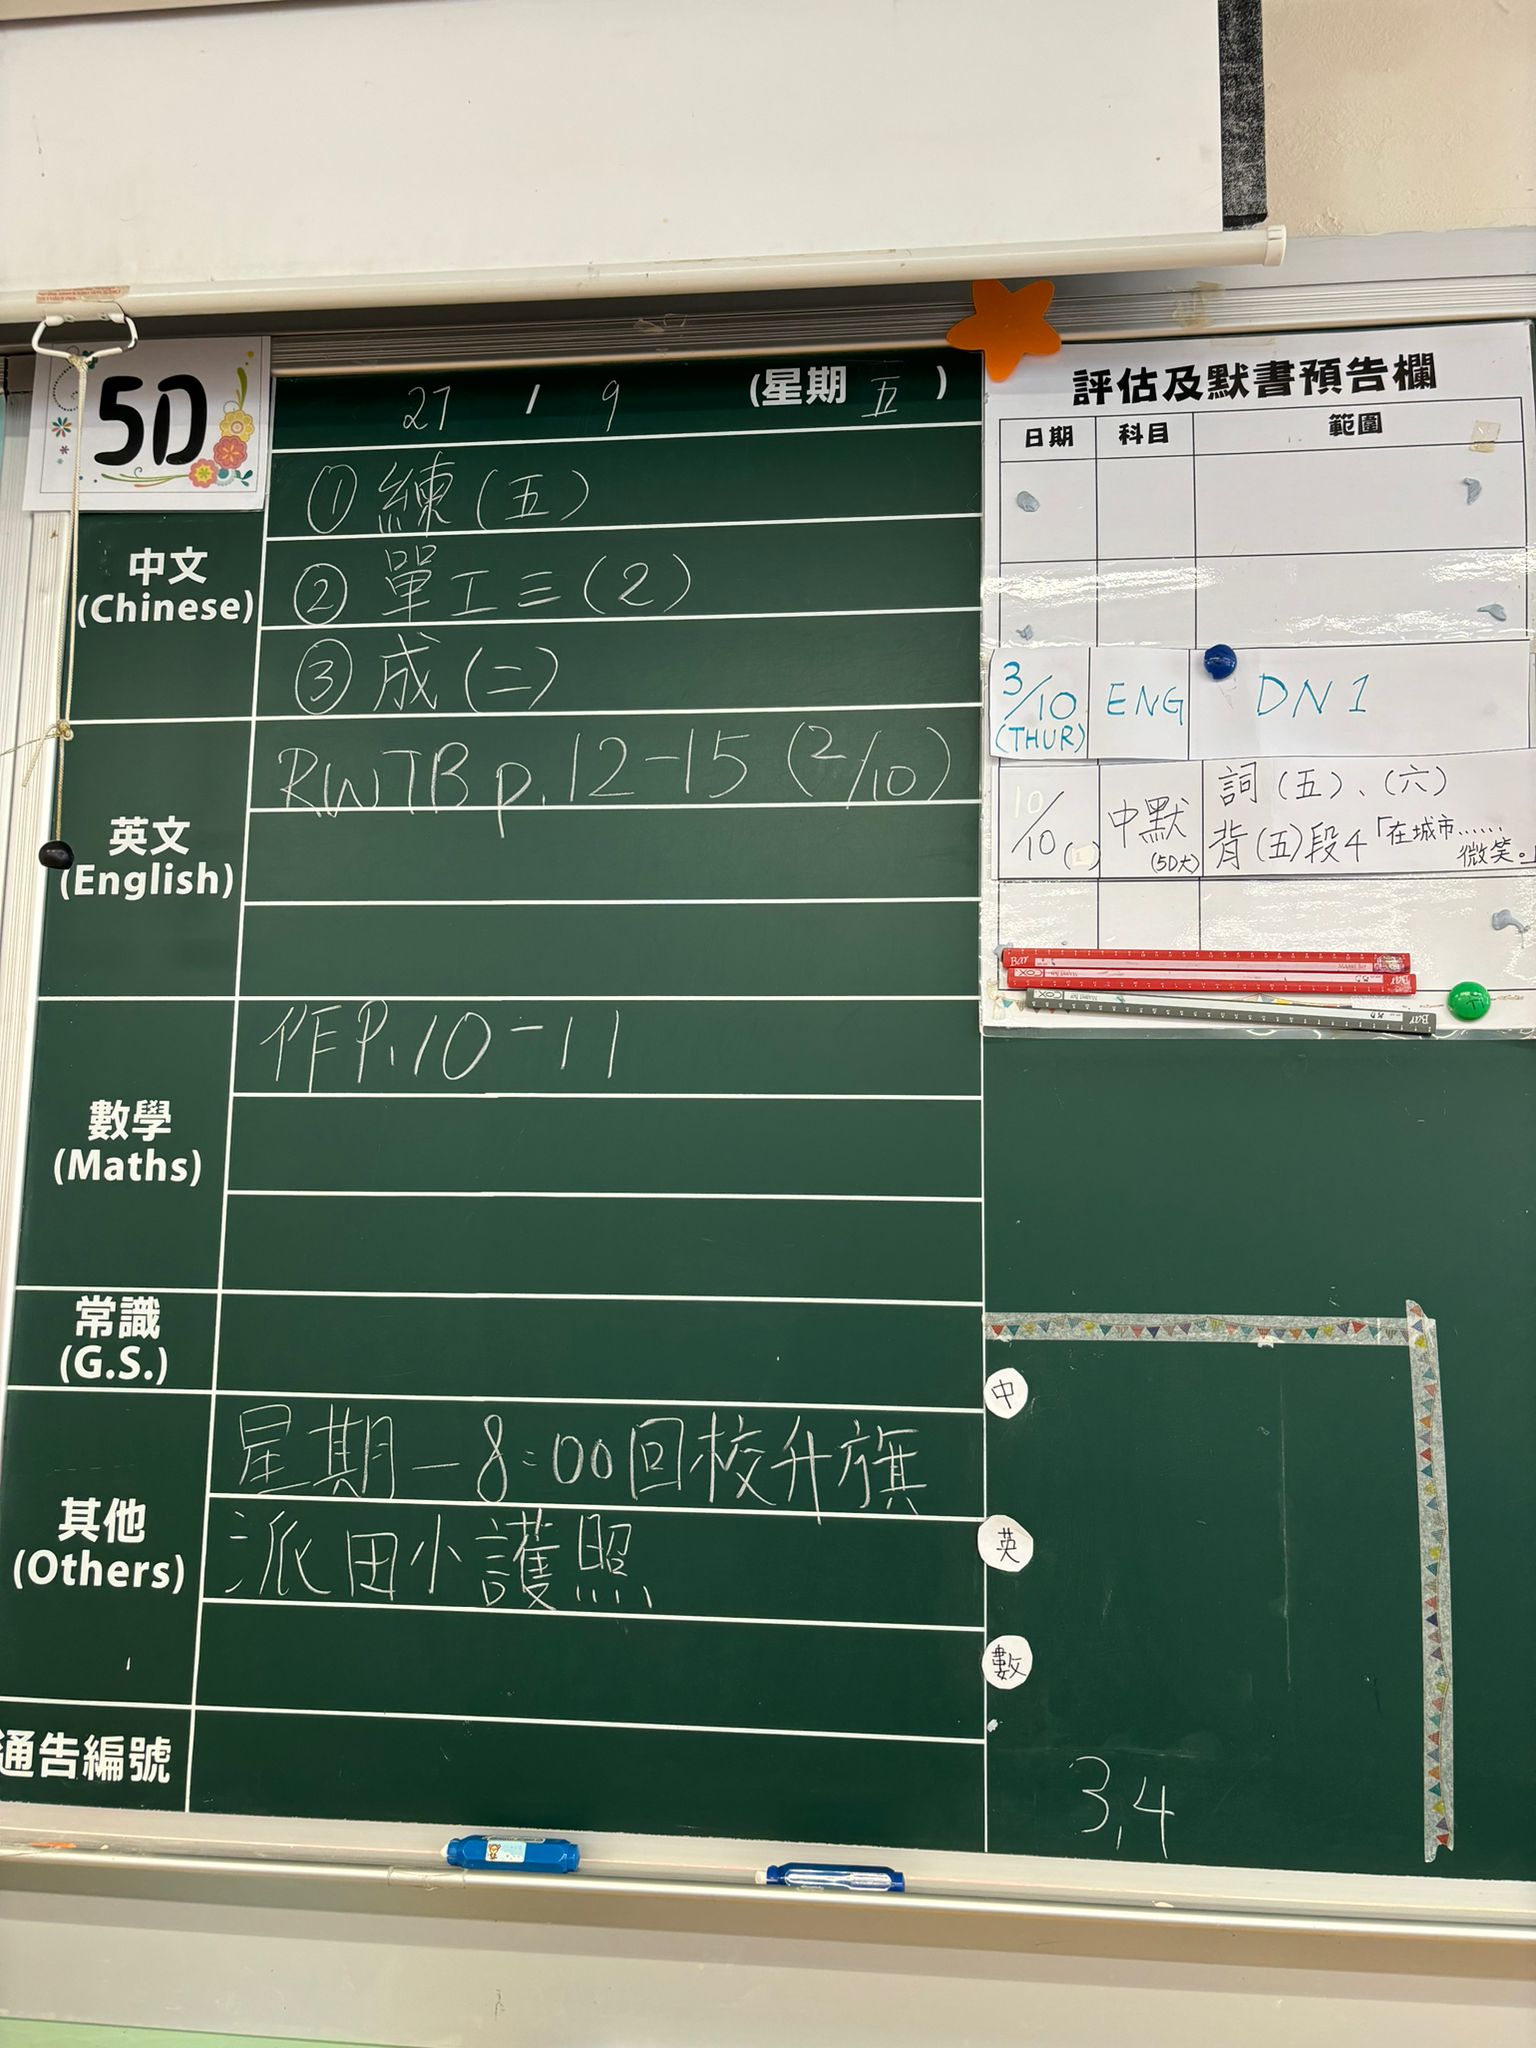 5D
27 / 9 (星期 五 )
中文
(Chinese)
① 練(五)
② 單工三(2)
③ 成(二)
英文
(English)
RWTB p.12-15 (2/10)
數學
(Maths)
作P.10-11
常識
(G.S.)
其他
(Others)
星期一8:00回校升旗
派田小護照
通告編號
評估及默書預告欄
日期 科目 範圍
3/10 (THUR) ENG DN 1
10/10 中默 (5D大) 詞(五)、(六)
背(五)段4「在城市……微笑。」
中
英
數
3,4